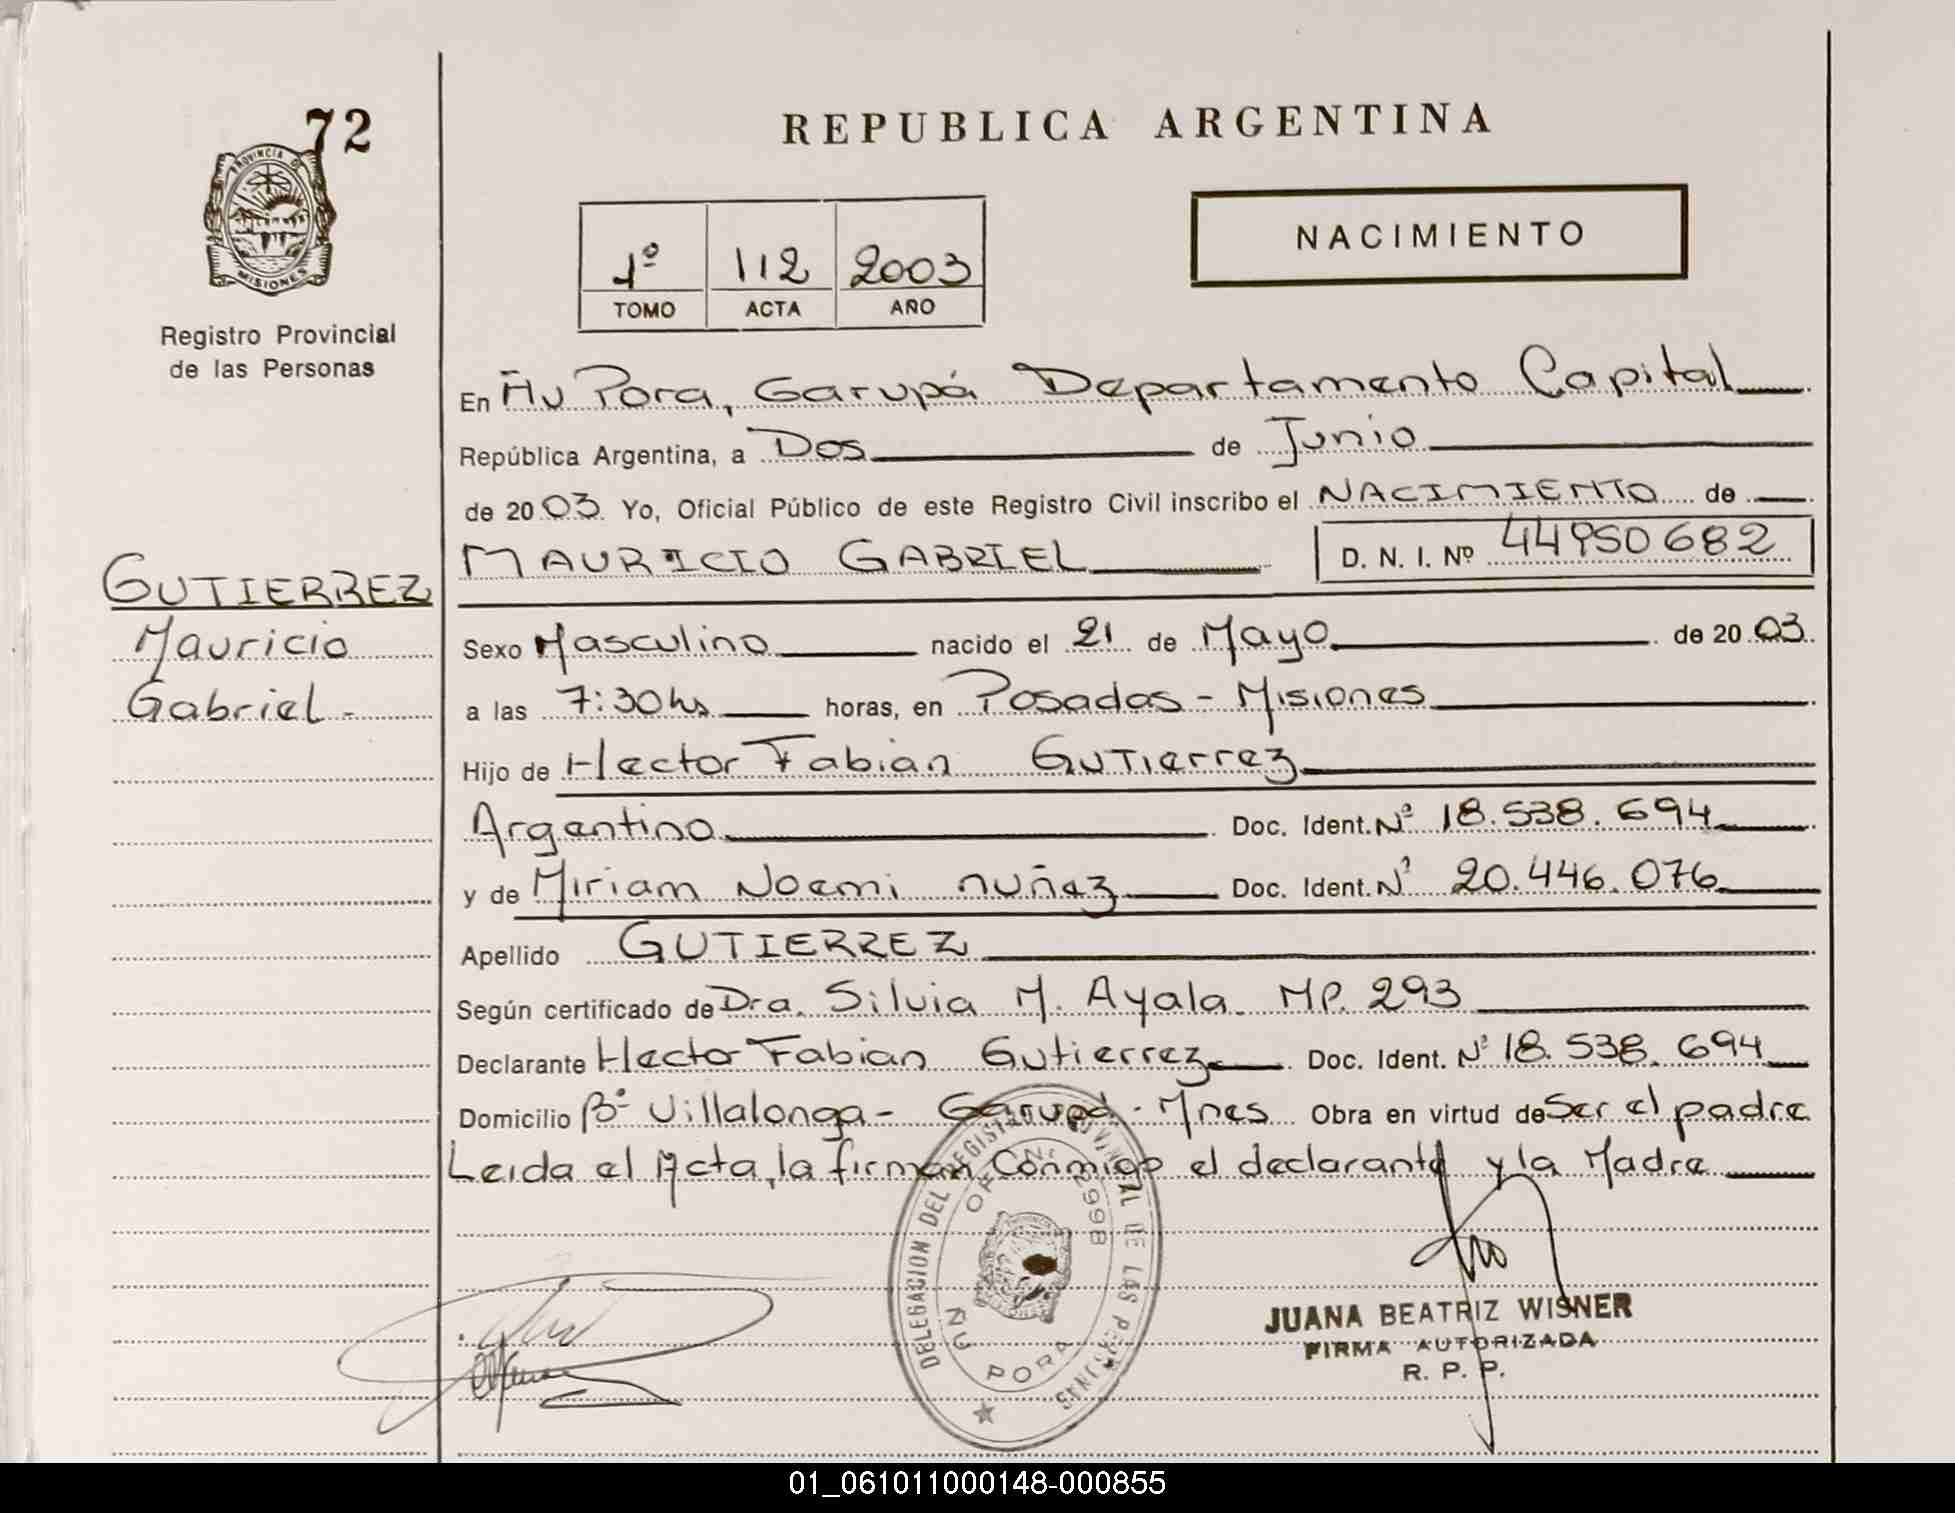 72
PROVINCIA DE
MISIONES
Registro Provincial
de las Personas
REPUBLICA ARGENTINA
1º 112 2003
TOMO ACTA AÑO
NACIMIENTO
En Ñu Pora, Garupá Departamento Capital
República Argentina, a Dos de Junio
de 2003 Yo, Oficial Público de este Registro Civil inscribo el NACIMIENTO de
MAURICIO GABRIEL D. N. I. Nº 44950682
GUTIERREZ
Mauricio
Gabriel -
Sexo Masculino nacido el 21 de Mayo de 2003
a las 7:30hs horas, en Posadas - Misiones
Hijo de Hector Fabian Gutierrez
Argentino Doc. Ident. Nº 18.538.694
y de Miriam Noemi nuñez Doc. Ident. Nº 20.446.076
Apellido GUTIERREZ
Según certificado de Dra. Silvia M. Ayala. MP. 293
Declarante Hector Fabian Gutierrez Doc. Ident. Nº 18.538.694
Domicilio Bº Villalonga - Garupá - Mnes Obra en virtud de Ser el padre
Leida el Acta, la firman Conmigo el declarante y la Madre
DELEGACION DEL REGISTRO PROVINCIAL DE LAS PERSONAS
OFICINA 2998
ÑU PORA
JUANA BEATRIZ WISNER
FIRMA AUTORIZADA
R. P. P.
01_061011000148-000855